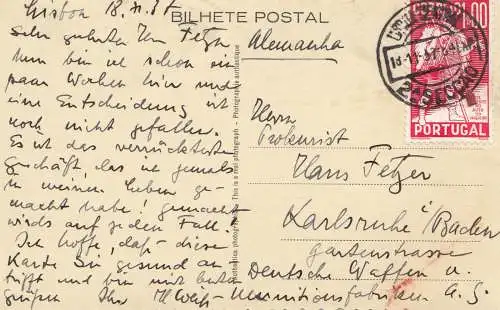 Lissabon 18.11.37
Sehr geehrter Herr Fetzer
Nun bin ich schon ein
paar Wochen hier und
eine Entscheidung ist
noch nicht gefallen.
Es ist das verrückteste
Geschäft, das ich jemals
in meinem Leben ge-
macht habe! gemacht
wirds auf jeden Fall!
Ich hoffe, daß diese
Karte Sie gesund an-
trifft und bin mit besten
Grüßen Ihr
BILHETE POSTAL
Alemanha
This is a real photograph - Photographie authentique
Herrn
Prokurist
Hans Fetzer
Karlsruhe/Baden
Gartenstrasse
Deutsche Waffen u.
Munitionsfabriken A.G.
1.00
PORTUGAL
2ª SECÇÃO